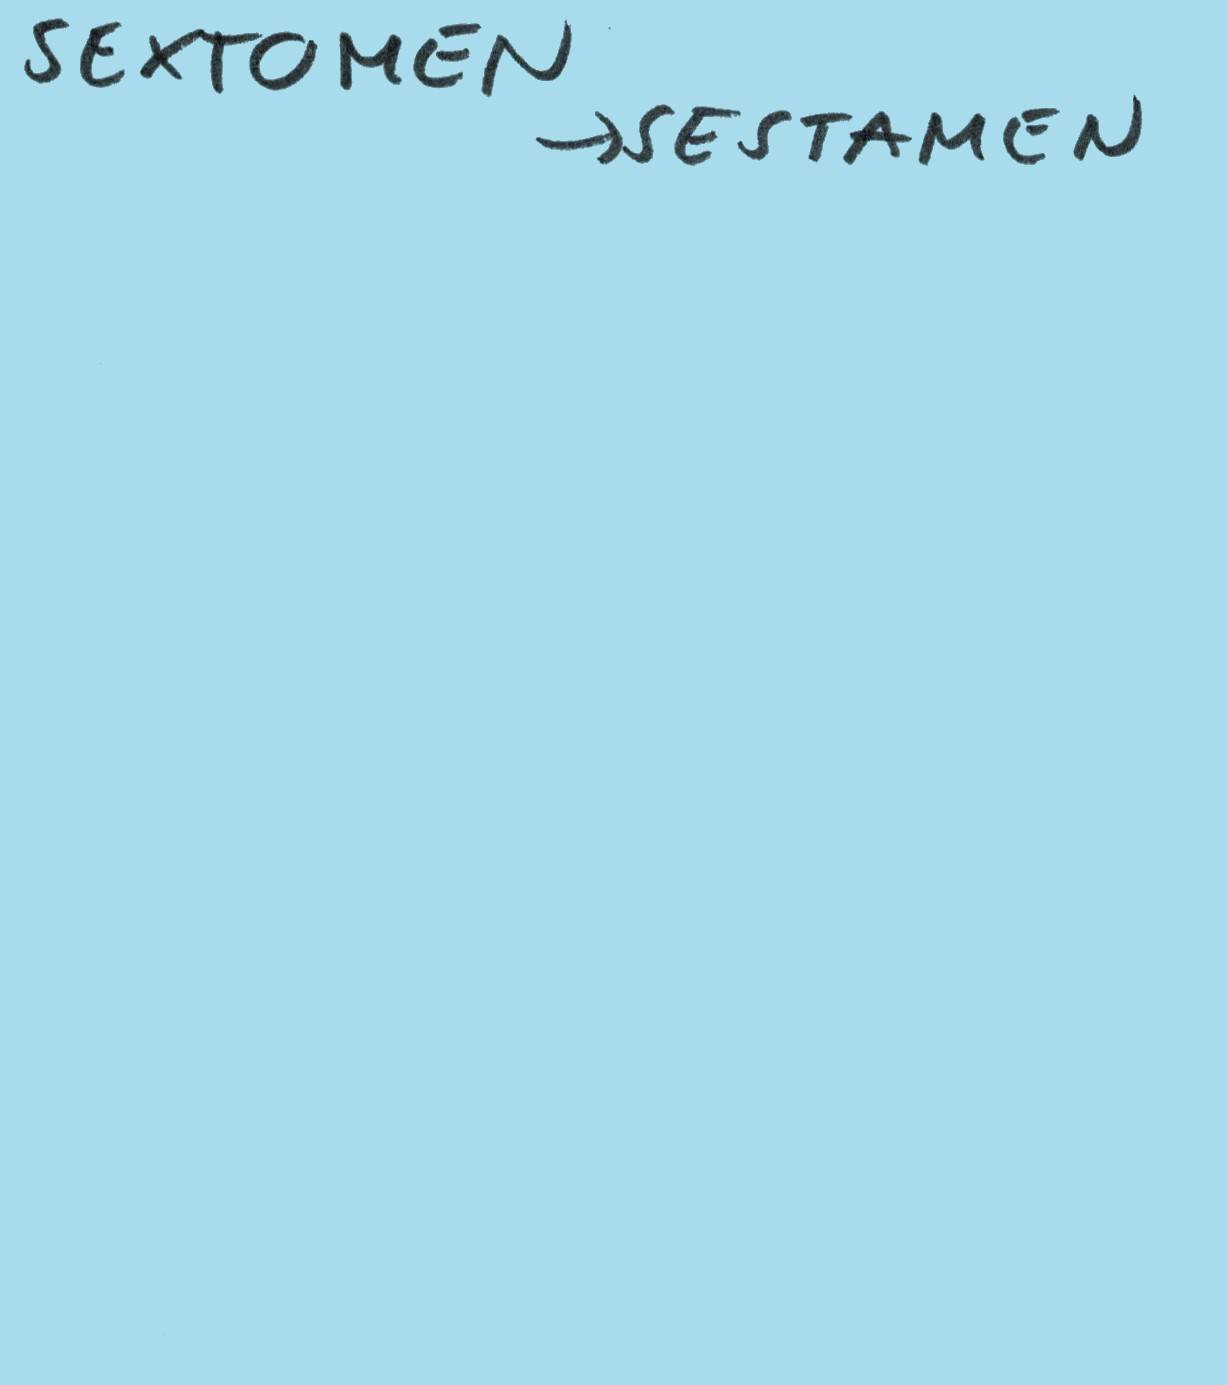 SEXTOMEN
→SESTAMEN